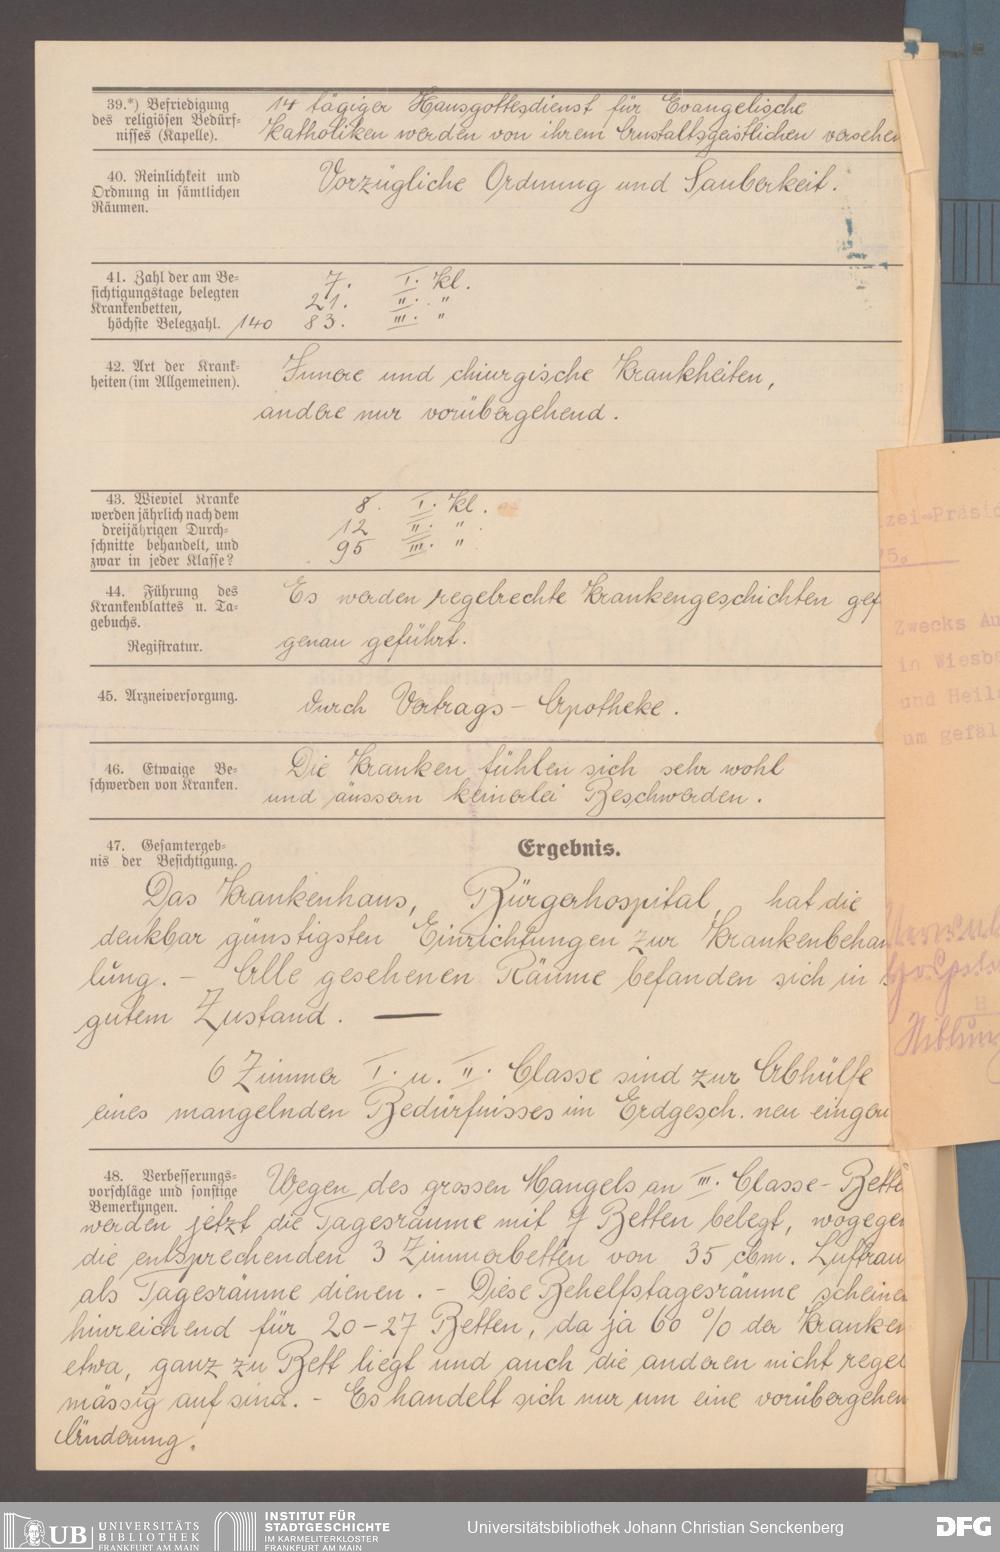 39.*) Befriedigung
des religiösen Bedürf-
nisses (Kapelle).
14 tägiger Hausgottesdienst für Evangelische
Katholiken werden von ihrem Anstaltsgeistlichen versehen
40. Reinlichkeit und
Ordnung in sämtlichen
Räumen.
Vorzügliche Ordnung und Sauberkeit.
41. Zahl der am Be-
sichtigungstage belegten
Krankenbetten,
höchste Belegzahl. 140
7. I. Kl.
21. II. "
83. III. "
42. Art der Krank-
heiten (im Allgemeinen).
Innere und chirurgische Krankheiten,
andere nur vorübergehend.
43. Wieviel Kranke
werden jährlich nach dem
dreijährigen Durch-
schnitte behandelt, und
zwar in jeder Klasse?
8. I. Kl.
12 II. "
95 III. "
44. Führung des
Krankenblattes u. Ta-
gebuchs.
Registratur.
Es werden regelrechte Krankengeschichten gef
genau geführt.
45. Arzneiversorgung.
durch Vertrags- Apotheke.
46. Etwaige Be-
schwerden von Kranken.
Die Kranken fühlen sich sehr wohl
und äussern keinerlei Beschwerden.
47. Gesamtergeb-
nis der Besichtigung.
Ergebnis.
Das Krankenhaus, Bürgerhospital, hat die
denkbar günstigsten Einrichtungen zur Krankenbehan
lung. - Alle gesehenen Räume befanden sich in
gutem Zustand. —
6 Zimmer I. u. II. Classe sind zur Abhülfe
eines mangelnden Bedürfnisses im Erdgesch. neu einger
48. Verbesserungs-
vorschläge und sonstige
Bemerkungen.
Wegen des grossen Mangels an III. Classe- Bette
werden jetzt die Tagesräume mit 7 Betten belegt, wogegen
die entsprechenden 3 Zimmerbetten von 35 cbm. Luftrau
als Tagesräume dienen. - Diese Behelfstagesräume scheinen
hinreichend für 20-27 Betten, da ja 60 % der Kranken
etwa, ganz zu Bett liegt und auch die anderen nicht regel
mässig auf sind. - Es handelt sich nur um eine vorübergehen
Änderung!
izei-Präsid
Zwecks Au
in Wiesb
und Heil
um gefäl
UB
UNIVERSITÄTS
BIBLIOTHEK
FRANKFURT AM MAIN
INSTITUT FÜR
STADTGESCHICHTE
IM KARMELITERKLOSTER
FRANKFURT AM MAIN
Universitätsbibliothek Johann Christian Senckenberg
DFG